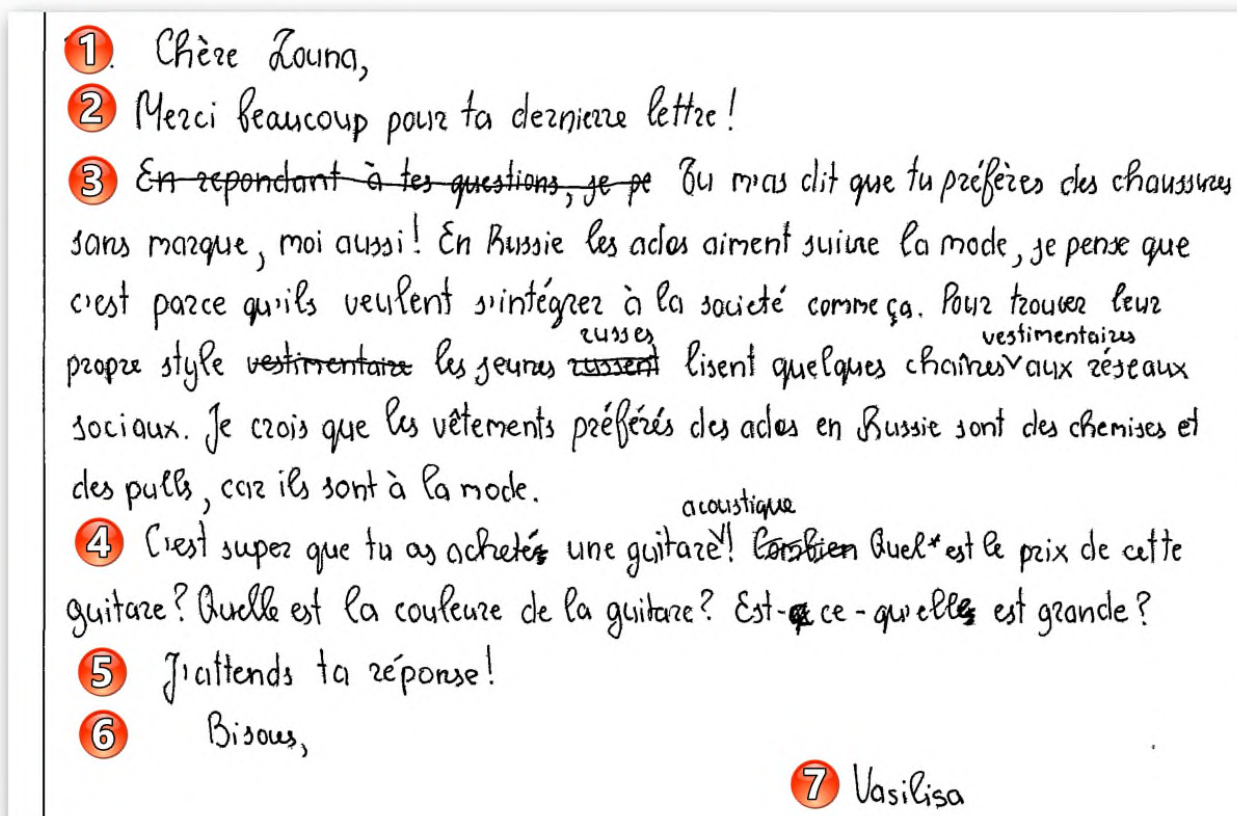 1. Chère Louna,
2 Merci beaucoup pour ta dernierre lettre!
3 En repondant à tes questions, je pe Tu m'as dit que tu préfères des chaussures
sans marque, moi aussi! En Russie les ados aiment suivre la mode, je pense que
c'est parce qu'ils veulent s'intégrer à la societé comme ça. Pour trouver leur
russes vestimentaires
propre style vestimentaire les jeunes russent lisent quelques chaînes aux réseaux
sociaux. Je crois que les vêtements préférés des ados en Russie sont des chemises et
des pulls, car ils sont à la mode.
acoustique
4 C'est super que tu as achetés une guitare! Combien Quel* est le prix de cette
guitare? Quelle est la couleure de la guitare? Est-ce-qu'elle est grande?
5 J'attends ta réponse!
6 Bisous,
7 Vasilisa